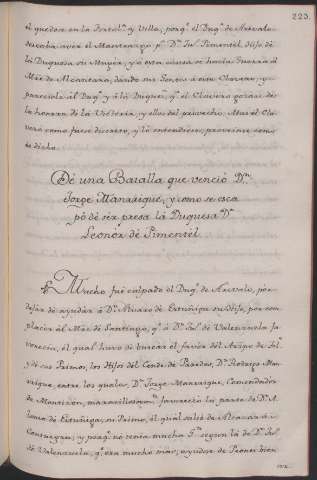 223.
el quedase en la Fortalª. y Villa, porqª. el Duqª. de Arevalo
deseaba aver el Maestrazgo pª. Dⁿ. Juⁿ. Pimentel, Hijo de
la Duquesa su Muger, y a esta causa se hacia Guerra al
Mte de Alcantara, dando sus Gentes a este Clavero, y
parecía al Duqª. y á la Duquesª. qª. el Clavero gozase de
la honrra de la Victoria, y ellos del provecho. Mas el Cla-
vero como fuese discreto, y lo entendiese, previno como
es dicho.
De una Batalla que venció Dⁿ.
Jorge Manrrique, y como se esca
pó de ser presa la Duquesa Dª.
Leonor de Pimentel
Mucho fue culpado el Duqª. de Arevalo, por
dejar de ayudar á Dⁿ. Alvaro de Estuñiga su Hijo, por com
placer al Mte de Santiago, qª. á Dⁿ. Juⁿ. de Valenzuela fa
vorecia, el qual huvo de buscar el favor del Arzpo de Tolº.
y de sus Primos, los Hijos del Conde de Paredes, Dⁿ. Rodrigo Man-
rrique, entre los quales, Dⁿ. Jorge Manrrique, Comendador
de Montizón, maravillosamᵗᵉ. favoreció la parte de Dⁿ. Al
varo de Estuñiga, su Primo, el qual salió de Alcazar de
Consuegra; y porqª. no tenia mucha Gᵗᵉ. segun la de Dⁿ. Juⁿ.
de Valenzuela, qª. era mucho mas, ayudose de Peones bien